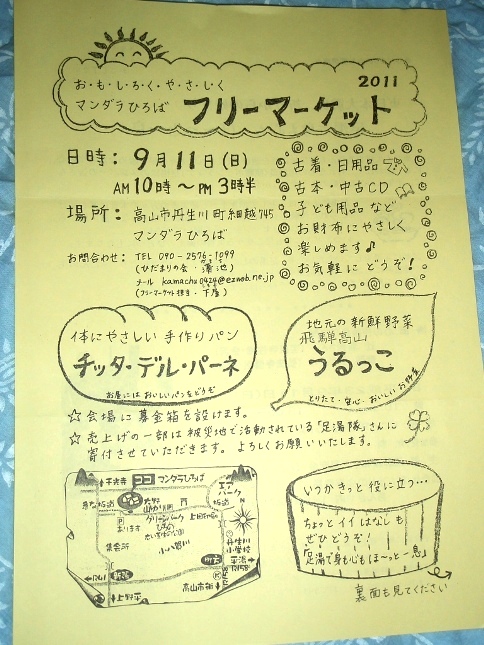 お・も・し・ろ・く・や・さ・し・く
マンダラひろば
2011
フリーマーケット
日時：9月11日(日)
AM10時～PM3時半
場所：高山市丹生川町細越745
マンダラひろば
お問合わせ：TEL 090-2576-1099
(ひだまりの会・蒲池)
メール kamachu0424@ezweb.ne.jp
(フリーマーケット担当・下屋)
古着・日用品
古本・中古CD
子ども用品など
お財布にやさしく
楽しめます♪
お気軽にどうぞ！
体にやさしい手作りパン
チッタ・デル・パーネ
お昼にはおいしいパンをどうぞ
地元の新鮮野菜
飛騨高山
うるっこ
とりたて・安心・おいしいお野菜
☆会場に募金箱を設けます。
☆売上げの一部は被災地で活動されている「足湯隊」さんに
寄付させていただきます。よろしくお願いいたします。
千光寺
ココ
マンダラひろば
エアパーク
P
グリーンパーク
集会所
小八賀川
丹生川
小学校
平湯
R158
R41
上野平
高山市街
いつかきっと役に立つ…
ちょっとイイはなしも
ぜひどうぞ！
「足湯で身も心もほ～っと一息」
裏面も見てください